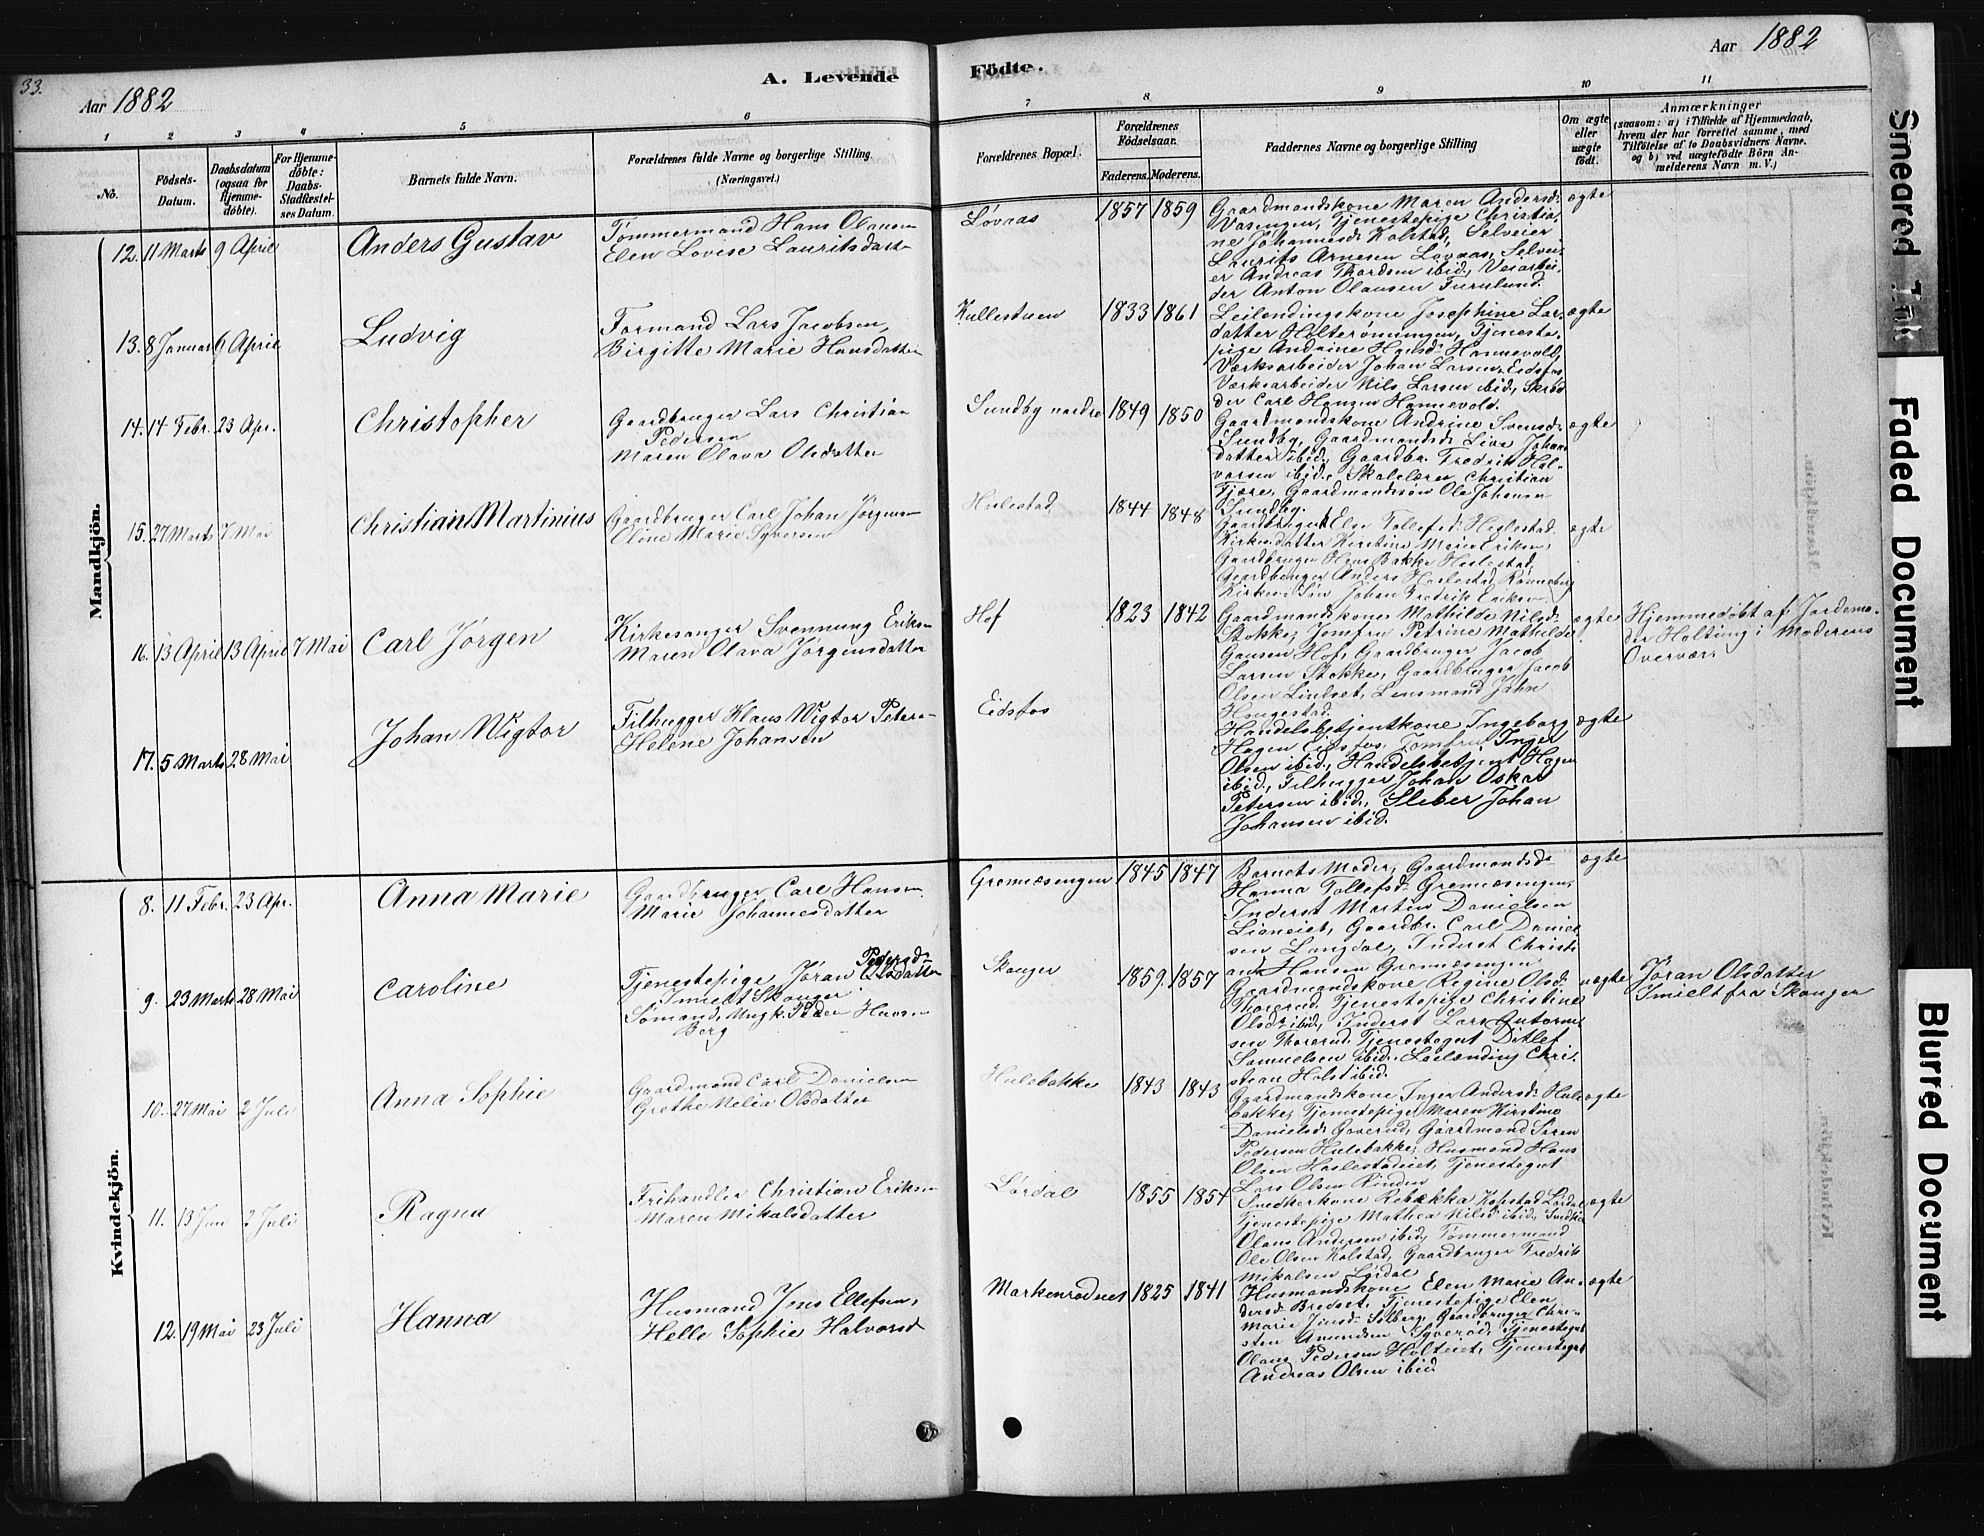 33.
A. Levende Födte.
Aar 1882
Aar 1882
1 2 3 4 5 6 7 8 9 10 11
No.
Födsels-Datum.
Daabsdatum (ogsaa for Hjemmedöbte).
For Hjemmedöbte: Daabs-Stadfæstelses Datum.
Barnets fulde Navn.
Forældrenes fulde Navne og borgerlige Stilling.
(Næringsvei.)
Forældrenes Bopæl.
Forældrenes Födselsaar.
Faderens. Moderens.
Faddernes Navne og borgerlige Stilling
Om ægte eller uægte födt.
Anmærkninger
(saasom: a) i Tilfælde af Hjemmedaab,
hvem der har forrettet samme, med
Tilföielse af to Daabsvidners Navne.
og b) ved uægtefödte Börn Anmelderens Navn m. V.)
Mandkjön.
12. 11 Marts 9 April Anders Gustav
Tømmermand Hans Olausen
Elen Lovise Lauritsdatter
Løvaas 1857 1859
Gaardmandskone Maren Andersd.
Vasengen, Tjenestepige Christia-
ne Johannesd. Kolstad, Selveier
Laurits Arnesen Løvaas, Selvei-
er Andreas Thordsen ibid, Veiarbei-
der Anton Olausen Furulund.
ægte
13. 8 Januar 9 April Ludvig
Formand Lars Jacobsen,
Birgitte Marie Hansdatter
Kullestuen 1833 1861
Leilendingskone Josephine Lar-
datter Holterønningen, Tjeneste-
pige Andrine Hansd. Hannevold,
Værksarbeider Johan Larsen Eidsfos
Værksarbeider Nils Larsen ibid, Skræd
der Carl Hansen Hannevold.
ægte
14. 14 Febr. 23 Apr. Christopher
Gaardbruger Lars Christian
Pedersen
Maren Olava Olsdatter
Sundby nordre 1849 1850
Gaardmandskone Andrine Svensd.
Sundby, Gaardmandsd. Lina Johans
datter ibid, Gaardbr. Fredrik Hal-
vorsen ibid, Skolelærer Christian
Fjære, Gaardmandssøn Ole Johansen
Sundby.
ægte
15. 27 Marts 7 Mai Christian Martinius
Gaardbruger Carl Johan Jørgensen
Oline Marie Syversen
Haslestad 1844 1848
Gaardbruger Elen Tollefsd. Haslestad
Kirkes. datter Kirstine Marie Eriksen,
Gaardbruger Hans Bakke Haslestad,
Gaardbruger Anders Haslestad Rønneberg
Kirkes. Søn Johan Fredrik Eriksen
ægte
16. 13 April 13 April 7 Mai Carl Jørgen
Kirkesanger Svennung Eriksen
Maren Olava Jørgensdatter
Hof 1823 1842
Gaardmandskone Mathilde Nilsd.
Stokke, Jomfru Petrine Mathilde
Gausen Hof, Gaardbruger Jacob
Larsen Stokke, Gaardbruger Jacob
Olsen Lindset, Lensmand John
Haugestad.
ægte
Hjemmedøbt af Jordemo-
der Holting i Moderens
Overvær.
17. 5 Marts 28 Mai Johan Wigtor
Filhugger Klaus Wigtor Petersen
Helene Johansen
Eidsfos
Handelsbetjentkone Ingeborg
Hagen Eidsfos, Jomfru Inger
Olsen ibid, Handelsbetjent Hagen
ibid, Filhugger Johan Oskar
Petersen ibid, Sleber Johan
Johansen ibid.
ægte
Kvindekjön.
8. 11 Febr. 23 Apr. Anna Marie
Gaardbruger Carl Hansen
Marie Johannesdatter
Grennesengen 1845 1847
Barnets Moder, Gaardmandsd.
Hanna Tollefsd. Grennesengen,
Inderst Martin Danielsen
Lioneiet, Gaardbr. Carl Daniel
sen Langdal, Inderst Christi
an Hansen Grennesengen
ægte
9. 23 Marts 28 Mai Caroline
Tjenestepige Jøran Olsdatter
Imielt Skauger
Sømand, Ungk. Peder Hansen
Berg
Skauger 1859. 1857
Gaardmandskone Regine Olsd.
Thorerud, Tjenestepige Christine
Olsd. ibid, Inderst Lars Antonni
sen Thorerud, Tjenestegut Ditlef
Samuelsen ibid. Leilending Chri-
stian Holst ibid.
uægte
Jøran Olsdatter
Imielt fra Skauger
10. 27 Mai 2 Juli Anna Sophie
Gaardmand Carl Danielsen
Grethe Nelia Olsdatter
Hulebakke 1843 1843
Gaardmandskone Inger Andersd. Hule
bakke, Tjenestepige Maren Kirstine
Danielsd. Goverud, Gaardmand Søren
Pedersen Hulebakke, Husmand Hans
Olsen Haslestadeiet, Tjenestegut
Lars Olsen Rinden
ægte
11. 13 Jun 2 Juli Ragna
Frihandler Christian Eriksen
Maren Mikalsdatter
Lørdal 1855 1854
Snedkerkone Rebekka Kopstad Lørdal
Tjenestepige Mathea Nilsd. ibid, Snedker
Olaus Andersen ibid, Tømmermand
Ole Olsen Kolstad, Gaardbruger Fredrik
Mikalsen Lørdal
ægte
12. 19 Mai 23 Juli Hanna
Husmand Jens Ellefsen,
Helle Sophie Halvorsd
Markenrødnes 1825 1841
Husmandskone Elen Marie An-
dersd. Bredset, Tjenestepige Elen
Marie Jensd. Solberg, Gaardbruger Chri-
sten Amundsen Syverød, Tjenestegut
Olaus Pedersen Holteiet, Tjenestegut
Andreas Olsen ibid.
ægte
Smeared Ink
Faded Document
Blurred Document